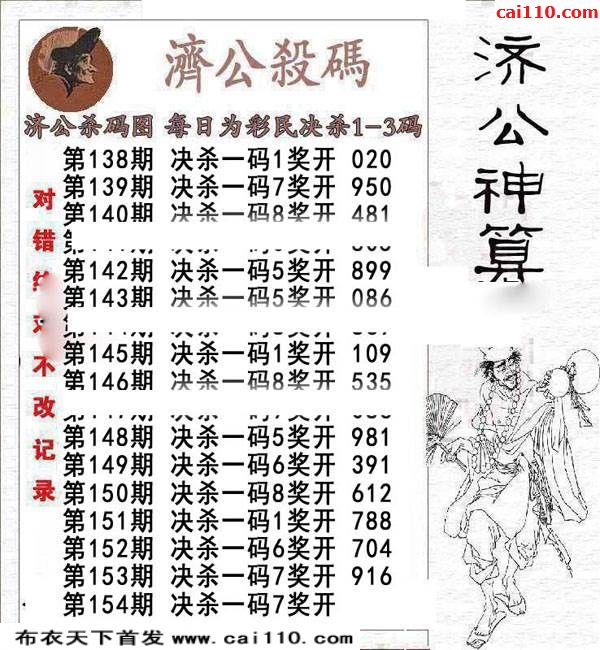 cai110.com
濟公殺碼
济公神算
济公杀码图 每日为彩民决杀1-3码
第138期 决杀一码1奖开 020
第139期 决杀一码7奖开 950
第140期 决杀一码8奖开 481
第142期 决杀一码5奖开 899
第143期 决杀一码5奖开 086
第145期 决杀一码1奖开 109
第146期 决杀一码8奖开 535
第148期 决杀一码5奖开 981
第149期 决杀一码6奖开 391
第150期 决杀一码8奖开 612
第151期 决杀一码1奖开 788
第152期 决杀一码6奖开 704
第153期 决杀一码7奖开 916
第154期 决杀一码7奖开
对错 不改记录
布衣天下首发 www.cai110.com